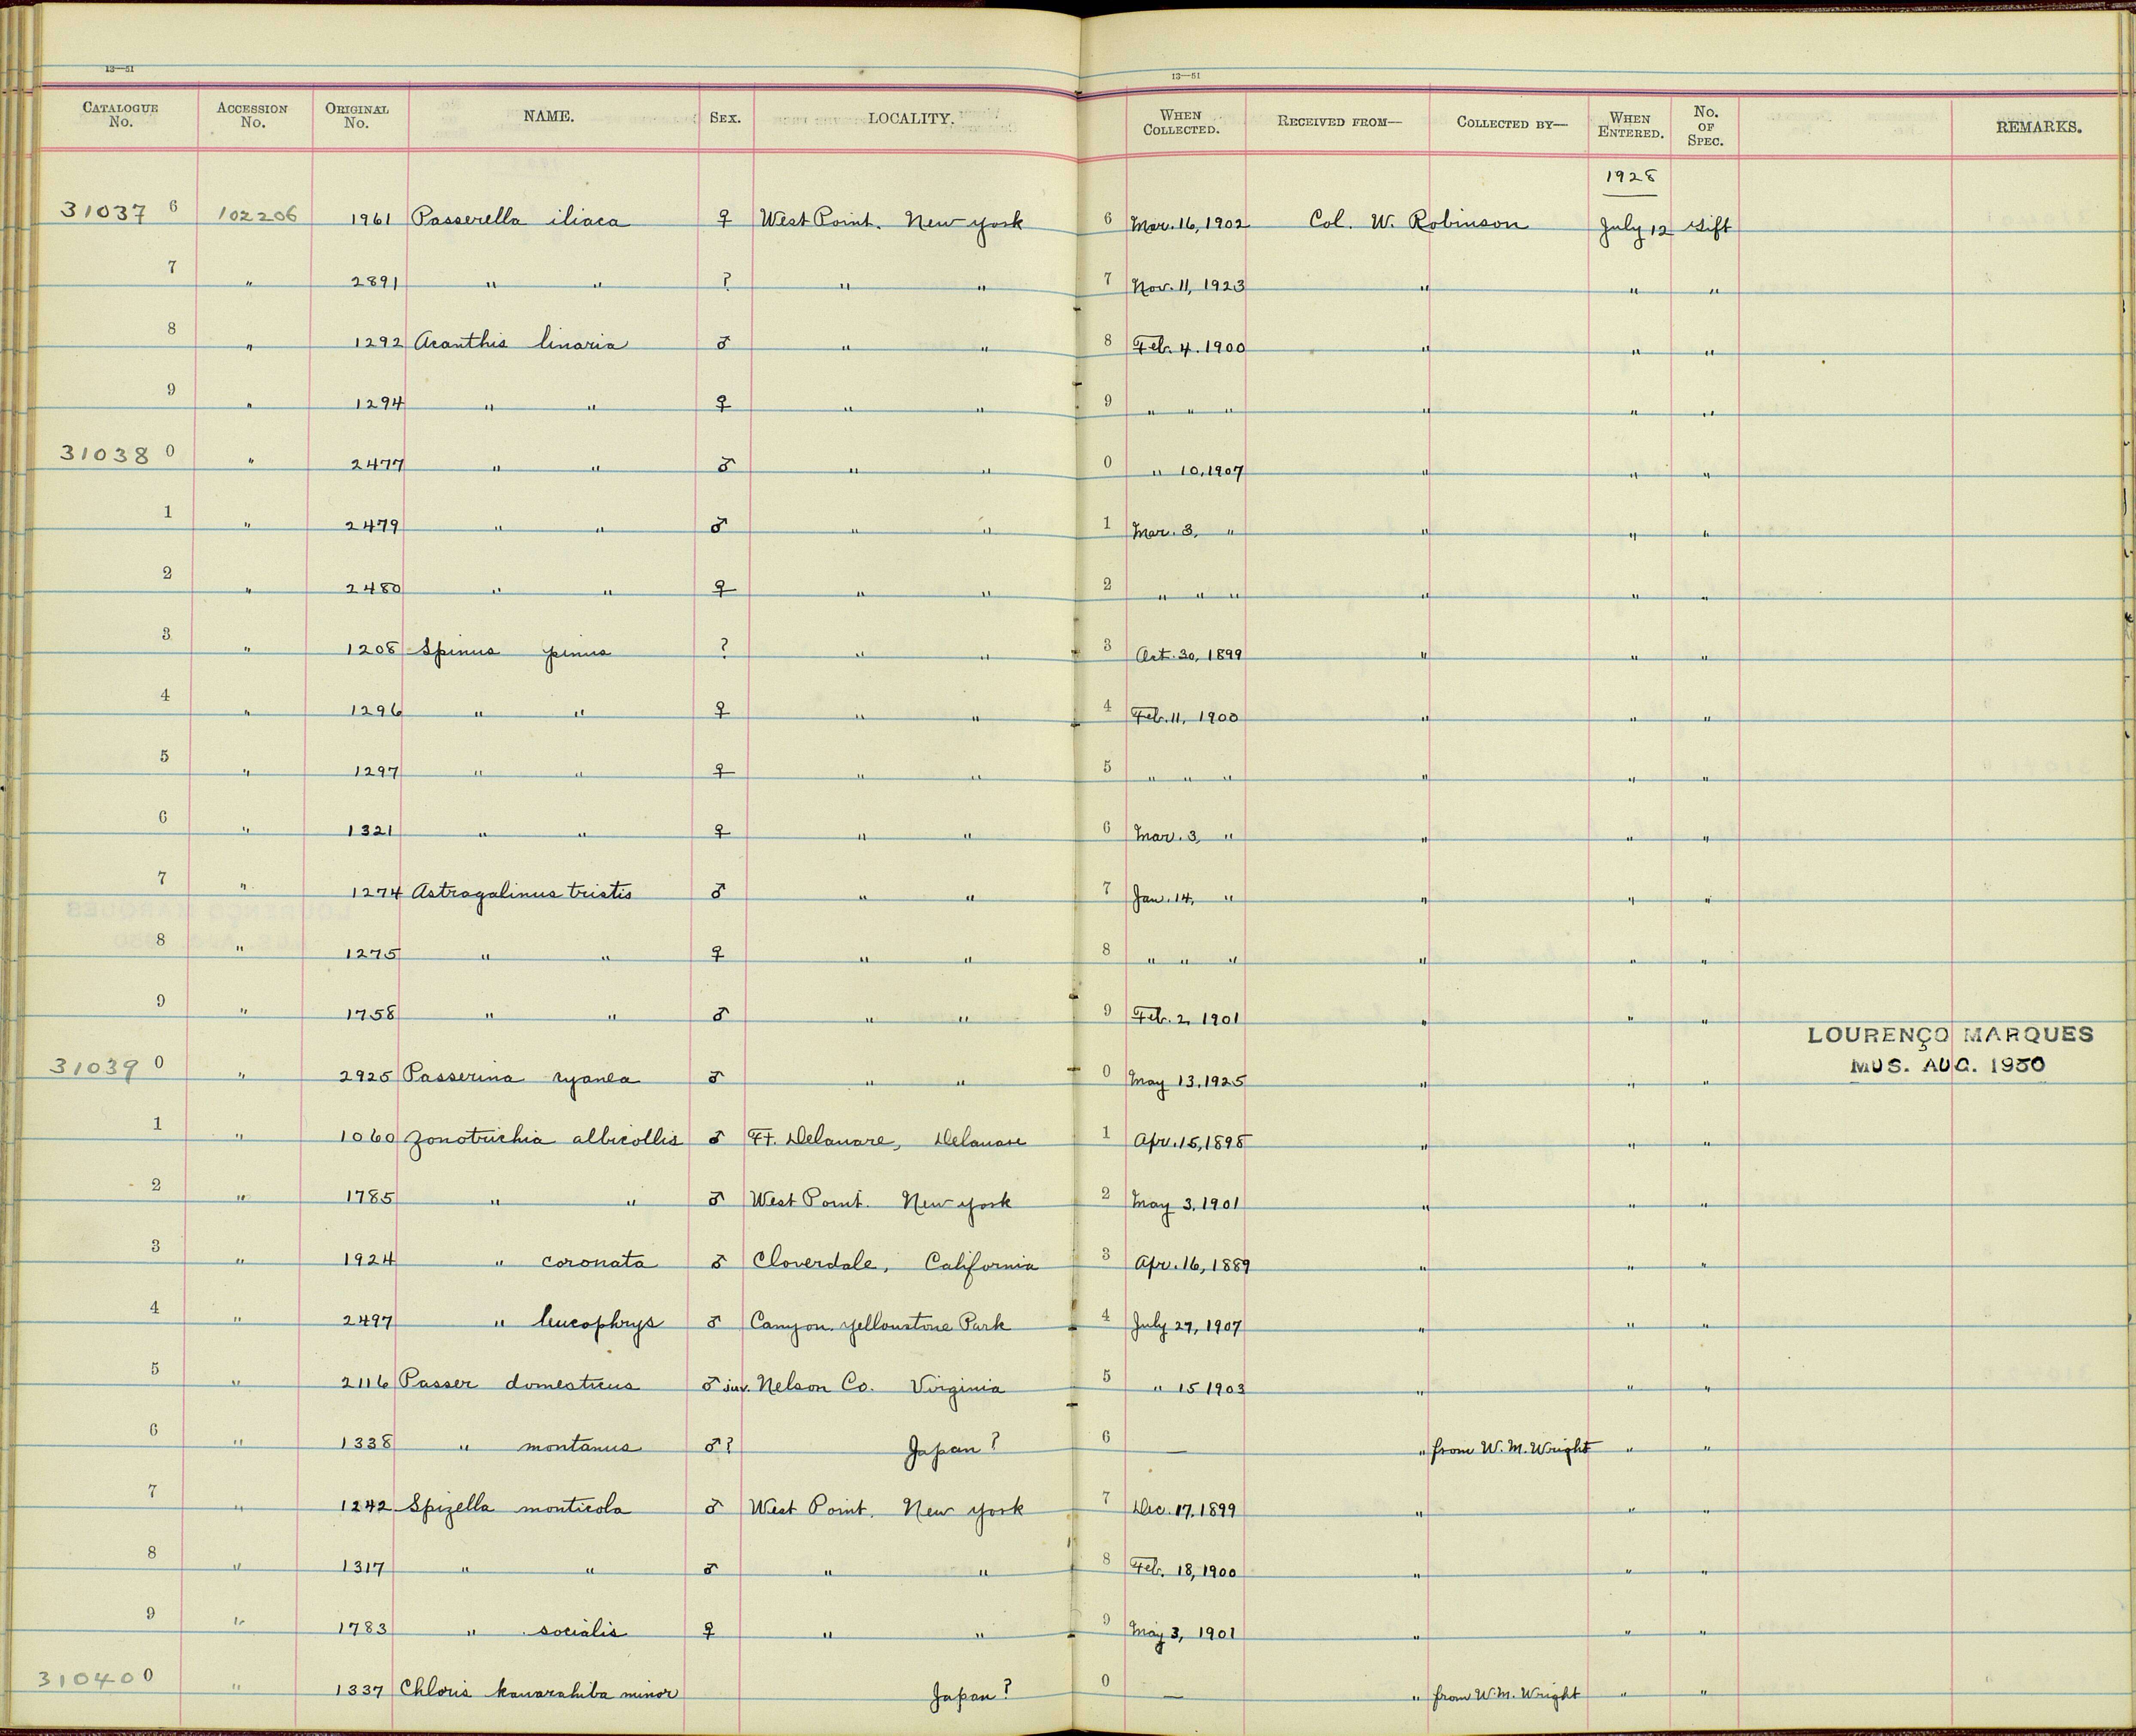 13—51 13—51
CATALOGUE No. ACCESSION No. ORIGINAL No. NAME. SEX. LOCALITY. WHEN COLLECTED. RECEIVED FROM— COLLECTED BY— WHEN ENTERED. No. OF SPEC. REMARKS.
1928
31037 6 102206 1961 Passerella iliaca ♀ West Point. New York 6 Mar. 16, 1902 Col. W. Robinson July 12 Gift
7 " 2891 " " ? " " 7 Nov. 11, 1923 " " "
8 " 1292 Acanthis linaria ♂ " " 8 Feb. 4. 1900 " " "
9 " 1294 " " ♀ " " 9 " " " " " "
31038 0 " 2477 " " ♂ " " 0 " 10, 1907 " " "
1 " 2479 " " ♂ " " 1 Mar. 3, " " " "
2 " 2480 " " ♀ " " 2 " " " " " "
3 " 1208 Spinus pinus ? " " 3 Oct. 30, 1899 " " "
4 " 1296 " " ♀ " " 4 Feb. 11, 1900 " " "
5 " 1297 " " ♀ " " 5 " " " " " "
6 " 1321 " " ♀ " " 6 Mar. 3, " " " "
7 " 1274 Astragalinus tristis ♂ " " 7 Jan. 14, " " " "
8 " 1275 " " ♀ " " 8 " " " " " "
9 " 1758 " " ♂ " " 9 Feb. 2, 1901 " " "
LOURENÇO MARQUES
MUS. AUG. 1950
31039 0 " 2925 Passerina cyanea ♂ " " 0 May 13, 1925 " " "
1 " 1060 Zonotrichia albicollis ♂ Ft. Delaware, Delaware 1 Apr. 15, 1898 " " "
2 " 1785 " " ♂ West Point. New York 2 May 3, 1901 " " "
3 " 1924 " coronata ♂ Cloverdale, California 3 Apr. 16, 1889 " " "
4 " 2497 " leucophrys ♂ Canyon. Yellowstone Park 4 July 27, 1907 " " "
5 " 2116 Passer domesticus ♂ juv. Nelson Co. Virginia 5 " 15 1903 " " "
6 " 1338 " montanus ♂? Japan? 6 — " from W. M. Wright " "
7 " 1242 Spizella monticola ♂ West Point. New York 7 Dec. 17, 1899 " " "
8 " 1317 " " ♂ " " 8 Feb. 18, 1900 " " "
9 " 1783 " socialis ♀ " " 9 May 3, 1901 " " "
31040 0 " 1337 Chloris kawarahiba minor Japan? 0 — " from W. M. Wright " "